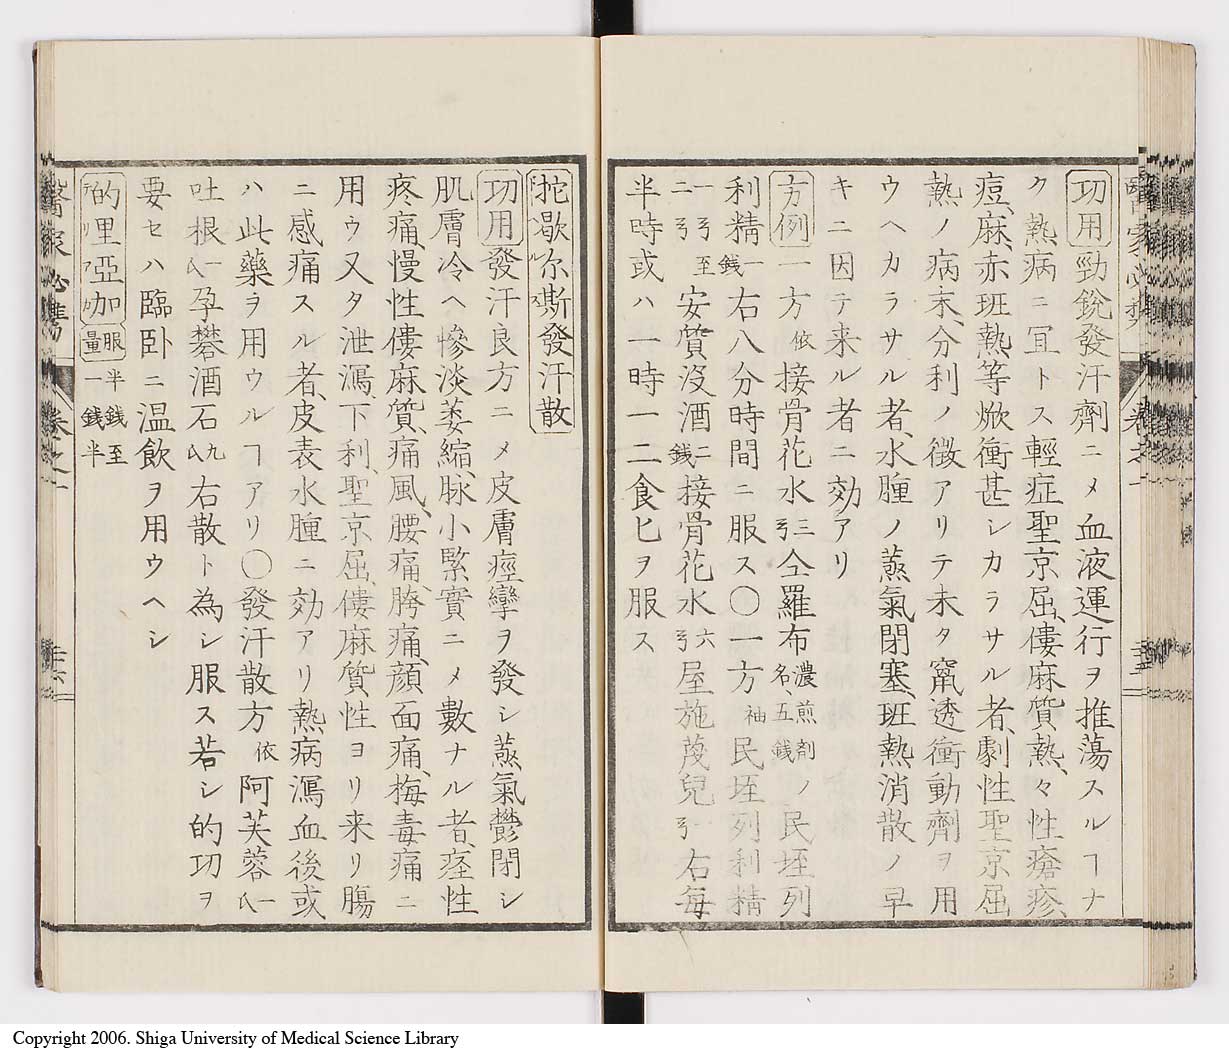 功用勁銳發汗劑ニメ血液運行ヲ推蕩スルヿナ
ク熱病ニ冝トス輕症聖京屈、僂麻質熱、々性瘡疹、
痘、麻、赤班熱等焮衝甚シカラサル者、劇性聖京屈
熱ノ病末、分利ノ徴アリテ未タ竄透衝動劑ヲ用
ウヘカラサル者、水腫ノ蒸氣閉塞、班熱消散ノ早
キニ因テ来ル者ニ効アリ
方例一方依接骨花水三弓仝羅布濃煎剤名、五銭ノ民垤列
利精一銭右八分時間ニ服ス〇一方袖民垤列利精
一弓至二弓安質没酒二銭接骨花水六弓屋施蔆兒一弓右毎
半時或ハ一時一二食匕ヲ服ス
抡歇尓斯發汗散
功用發汗良方ニメ皮膚痙攣ヲ發シ蒸氣鬱閉シ
肌膚冷ヘ慘淡萎縮、脉小緊實ニメ數ナル者、痙性
疼痛、慢性僂麻質、痛風、腰痛、胯痛、顔面痛、梅毒痛ニ
用ウ又タ泄瀉、下利、聖京屈、僂麻質、性ヨリ来リ腸
ニ感痛スル者、皮表水腫ニ効アリ熱病瀉血後或
ハ此藥ヲ用ウルヿアリ〇發汗散方依阿芙蓉一
吐根一孕礬酒石九右散ト為シ服ス若シ的功ヲ
要セハ臨卧ニ温飲ヲ用ウヘシ
的里亞加服量半銭至一銭半
醫家必携
卷之一
Copyright 2006. Shiga University of Medical Science Library